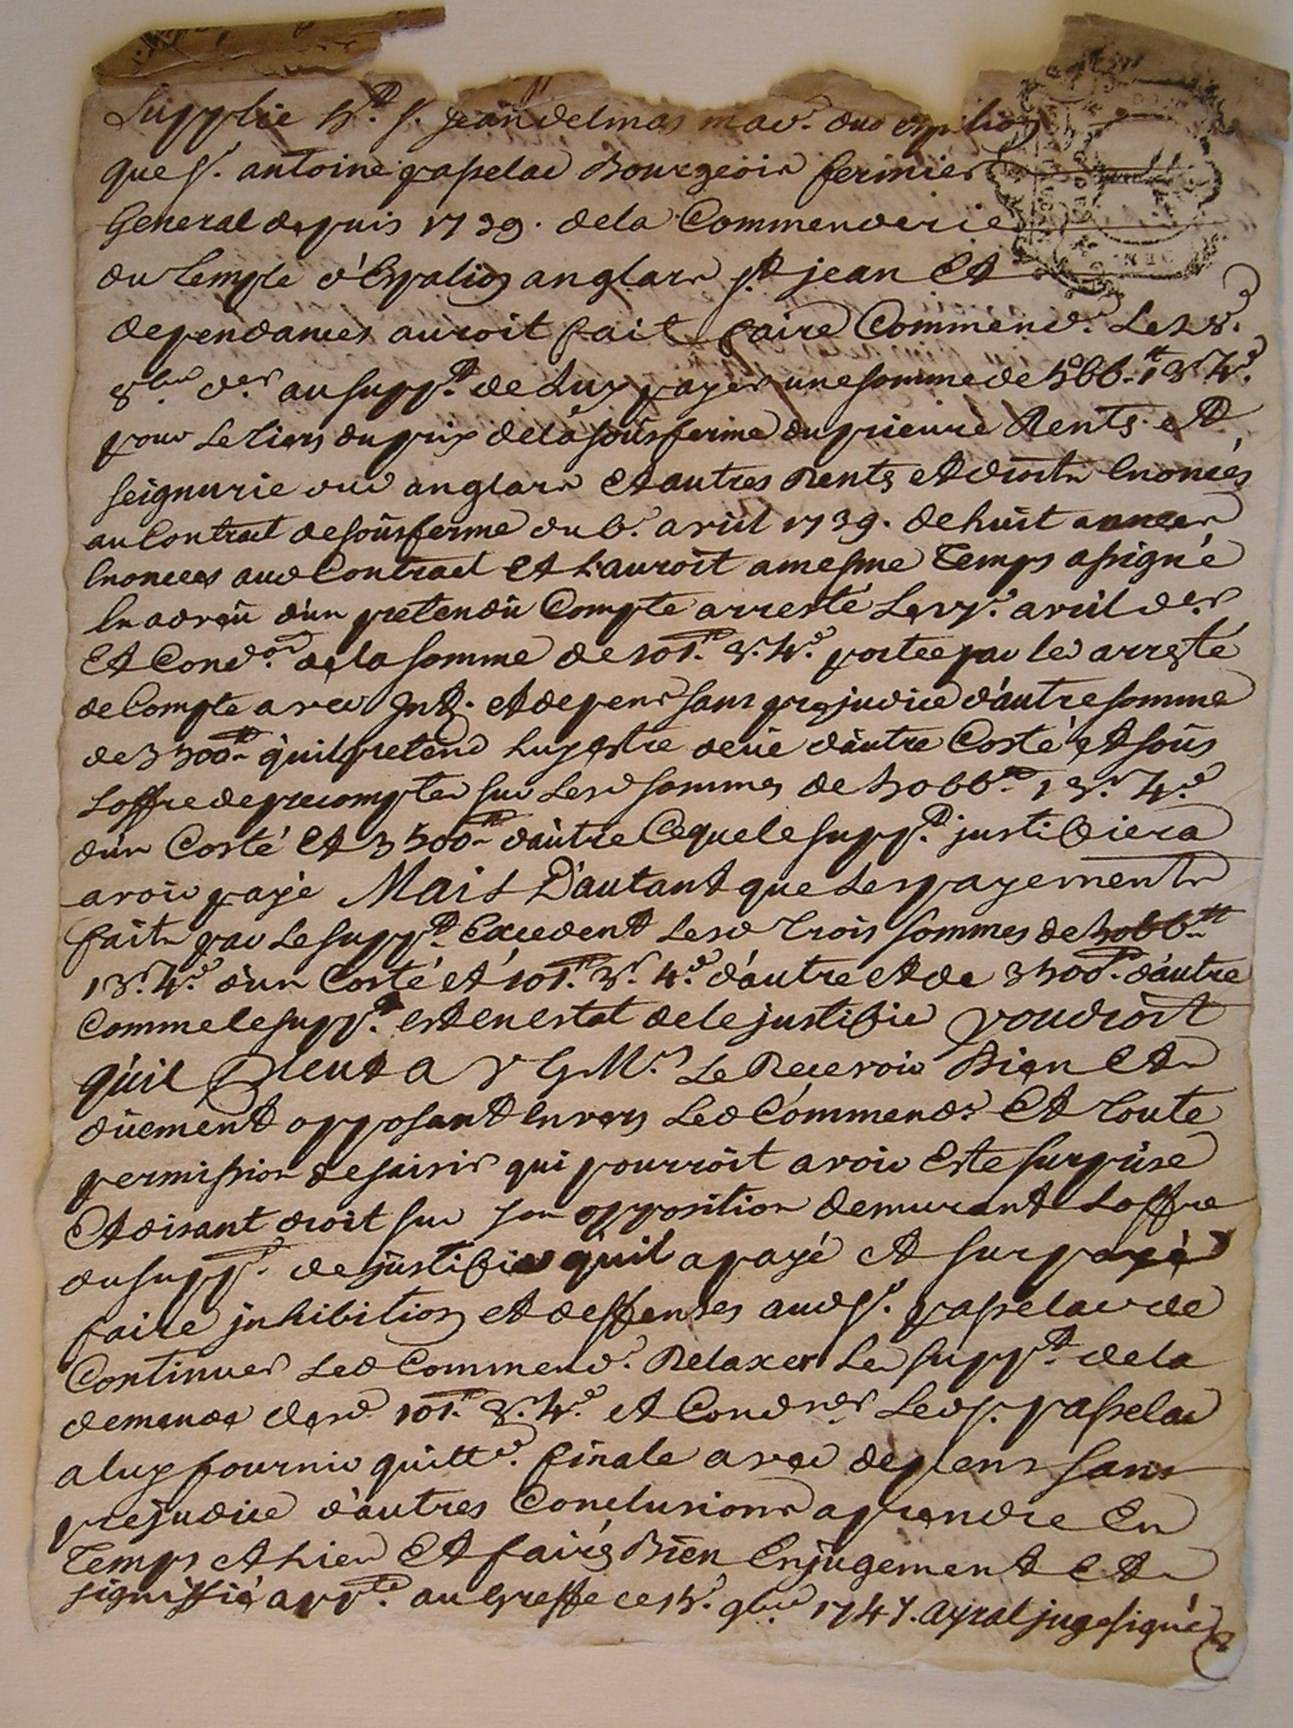 Supplie h.t s.r jean delmas mar.d dud espalion
que s.r antoine passelac Bourgeois fermier
General depuis 1739. de la Commenderie
du temple d'Espalion anglars s.t jean Et
dependances auroit fait faire Commend.t Le 28.
8bre d.er au supp.nt de Luy payer une somme de 13s 4d
pour Le tiers du prix de la sousferme du prieuré Rents et
seigneurie dud anglars Et autres Rents et droits Enoncés
au Contrat de sousferme du 6.e avril 1739. de huit années
Enoncees aud Contract Et L'auroit a mesme Temps assigné
En adveu d'un pretendu Compte arresté Le avril d.er
Et Cond.on de la somme de 101.tt 3.s 4.d portée par led arresté
de Compte avec Int.ts et depens sans prejudice d'autre somme
de 3500.tt qu'il pretend Luy estre deüe d'autre Costé et soûs
Loffre de precompter sur Lesd sommes de 5066.tt 13.s 4.d
d'un Costé Et 3500.tt d'autre Ce que le supp.nt justifiera
avoir payé Mais D'autant que Les payements
faits par Le supp.nt Excedent Lesd trois sommes de 5066.tt
13.s 4.d d'un Costé et 101.tt 3.s 4.d d'autre et de 3500.tt d'autre
Comme le supp.nt est en estat de le justifier voudroit
quil Pleut a V G M.r Le Recevoir Bien Et
düement opposant Envers Led Commend.t Et toute
permission de saisir qui pourroit avoir Esté surprise
Et disant droit sur son opposition demurant Loffre
du supp.nt de justifier qu'il a payé et surpayé
faire jnhibition et deffenses aud s.r passelac de
Continuer Led Commend.t Relaxer Le supp.nt de la
demande desd 101.tt 3.s 4.d et Condner Led s.r passelac
a luy fournir quitt.ce finale avec depens sans
prejudice d'autres Conclusions a prendre En
Temps et Lieu Et faire Bien En jugement Et
signiffié app.té au Greffe ce 15.e 9bre 1747. ayral juge signé